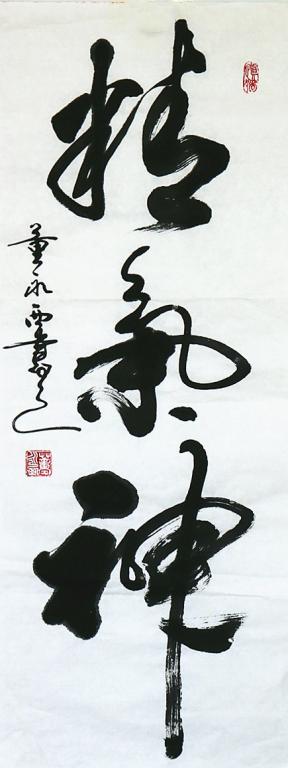 精氣神
董永西書之